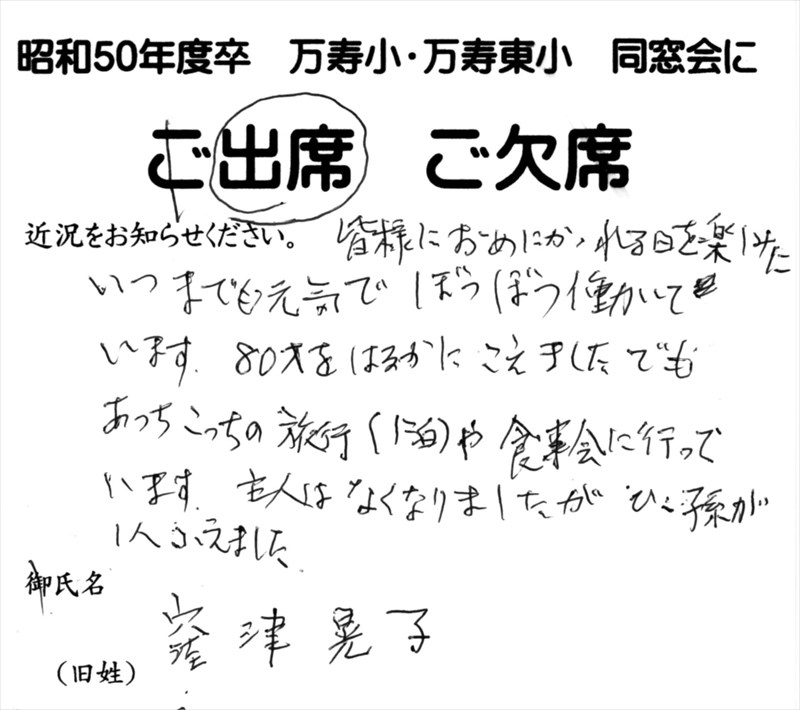 昭和50年度卒 万寿小・万寿東小 同窓会に
ご出席 ご欠席
近況をお知らせください。 皆様におめにかゝれる日を楽しみに
いつまでも元気で ぼつぼつ働いて
います. 80才をはるかにこえましたでも
あっちこっちの旅行(1泊)や食事会に行って
います. 主人はなくなりましたが ひ孫が
1人ふえました
御氏名
窪津晃子
(旧姓)